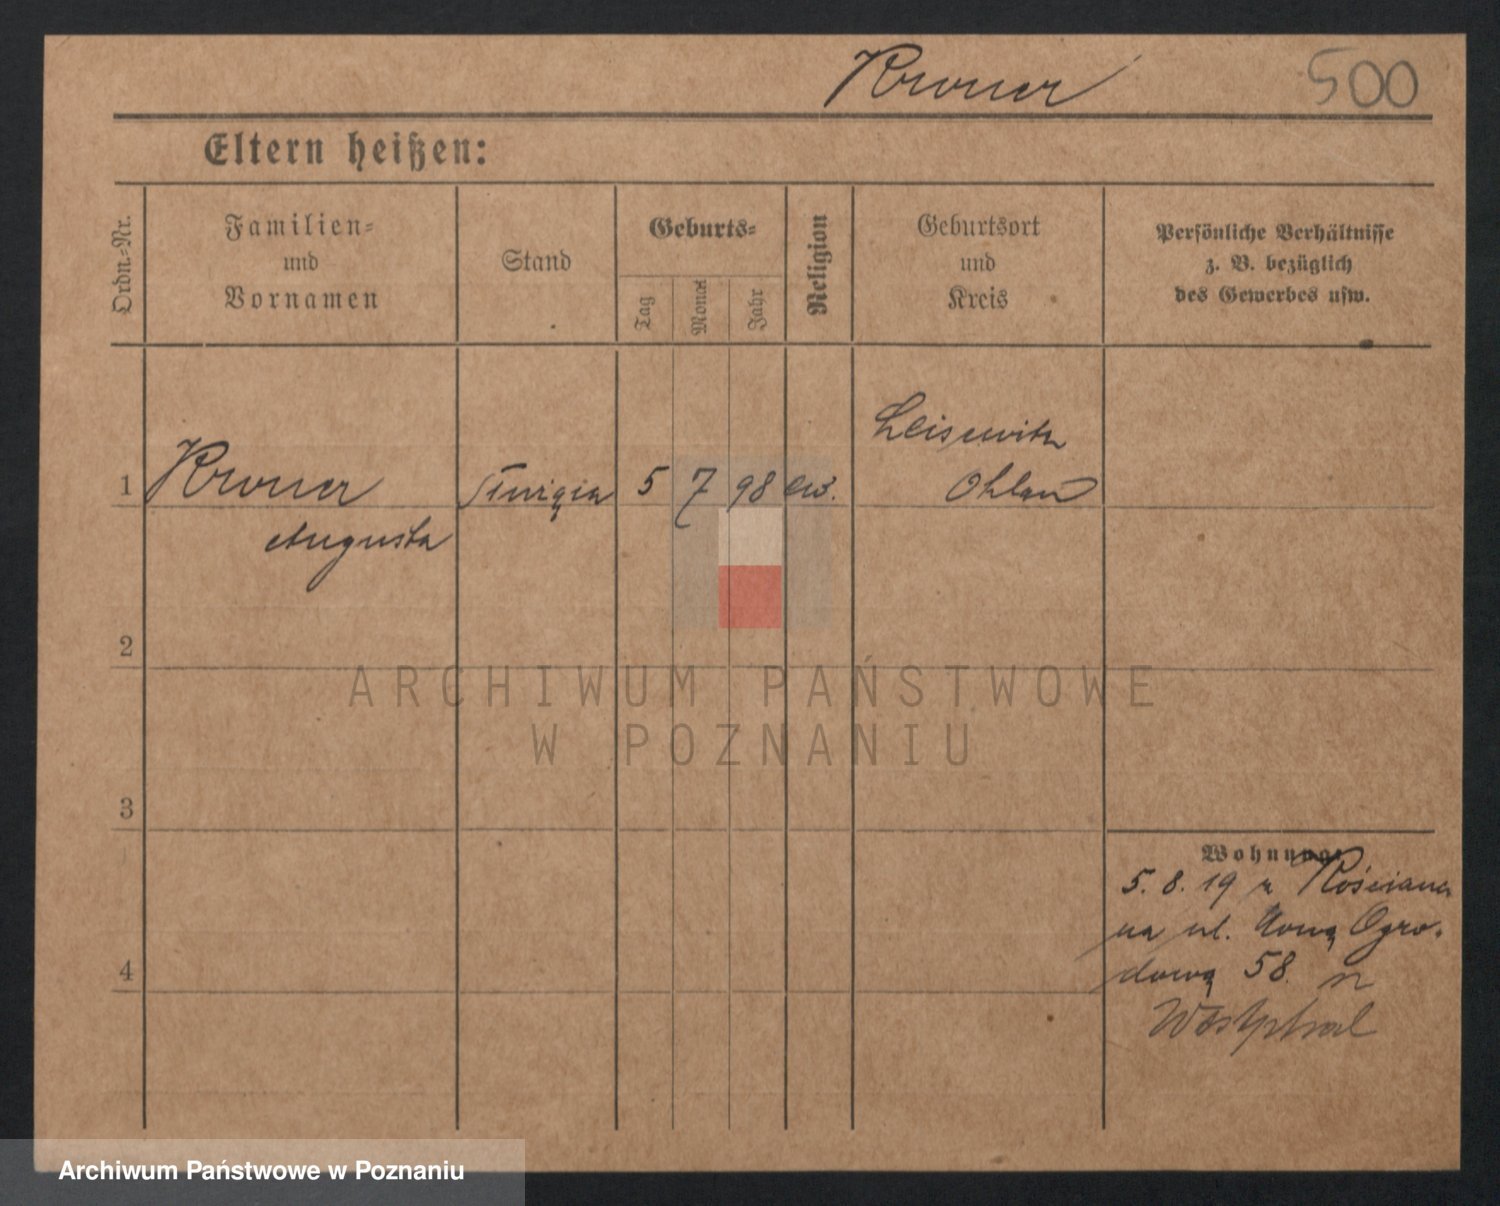 Kroner 500
Eltern heißen:
Ordn.-Nr.
Familien-
und
Vornamen
Stand
Geburts-
Tag
Monat
Jahr
Religion
Geburtsort
und
Kreis
Persönliche Verhältnisse
z. B. bezüglich
des Gewerbes usw.
Leisewitz
1 Kroner 5 7 98 ew. Ohlau
Augusta
2
ARCHIWUM PAŃSTWOWE
W POZNANIU
3
Wohnung:
5. 8. 19 z Kościana
na ul. Nową Ogro-
4
dową 58. n
Westphal
Archiwum Państwowe w Poznaniu